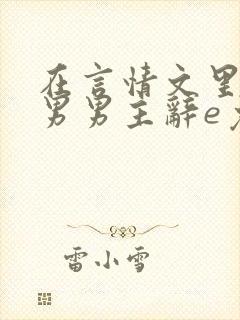 在言情文里
男男主辞e
雷小雪